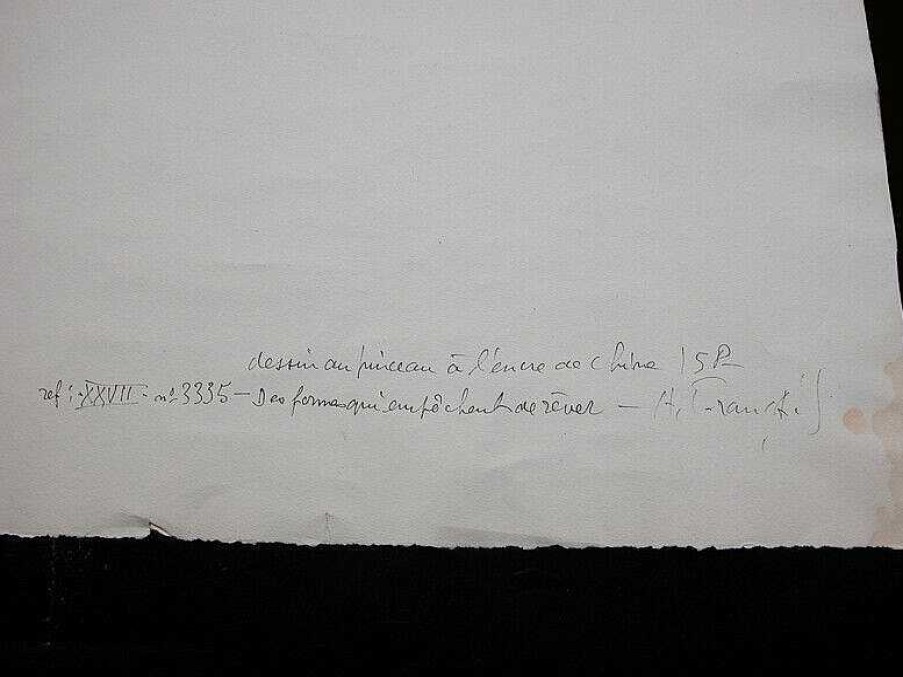 dessin au pinceau à l'encre de chine
ref: XXVII - n° 3335 - Des formes qui empêchent de rêver - H.